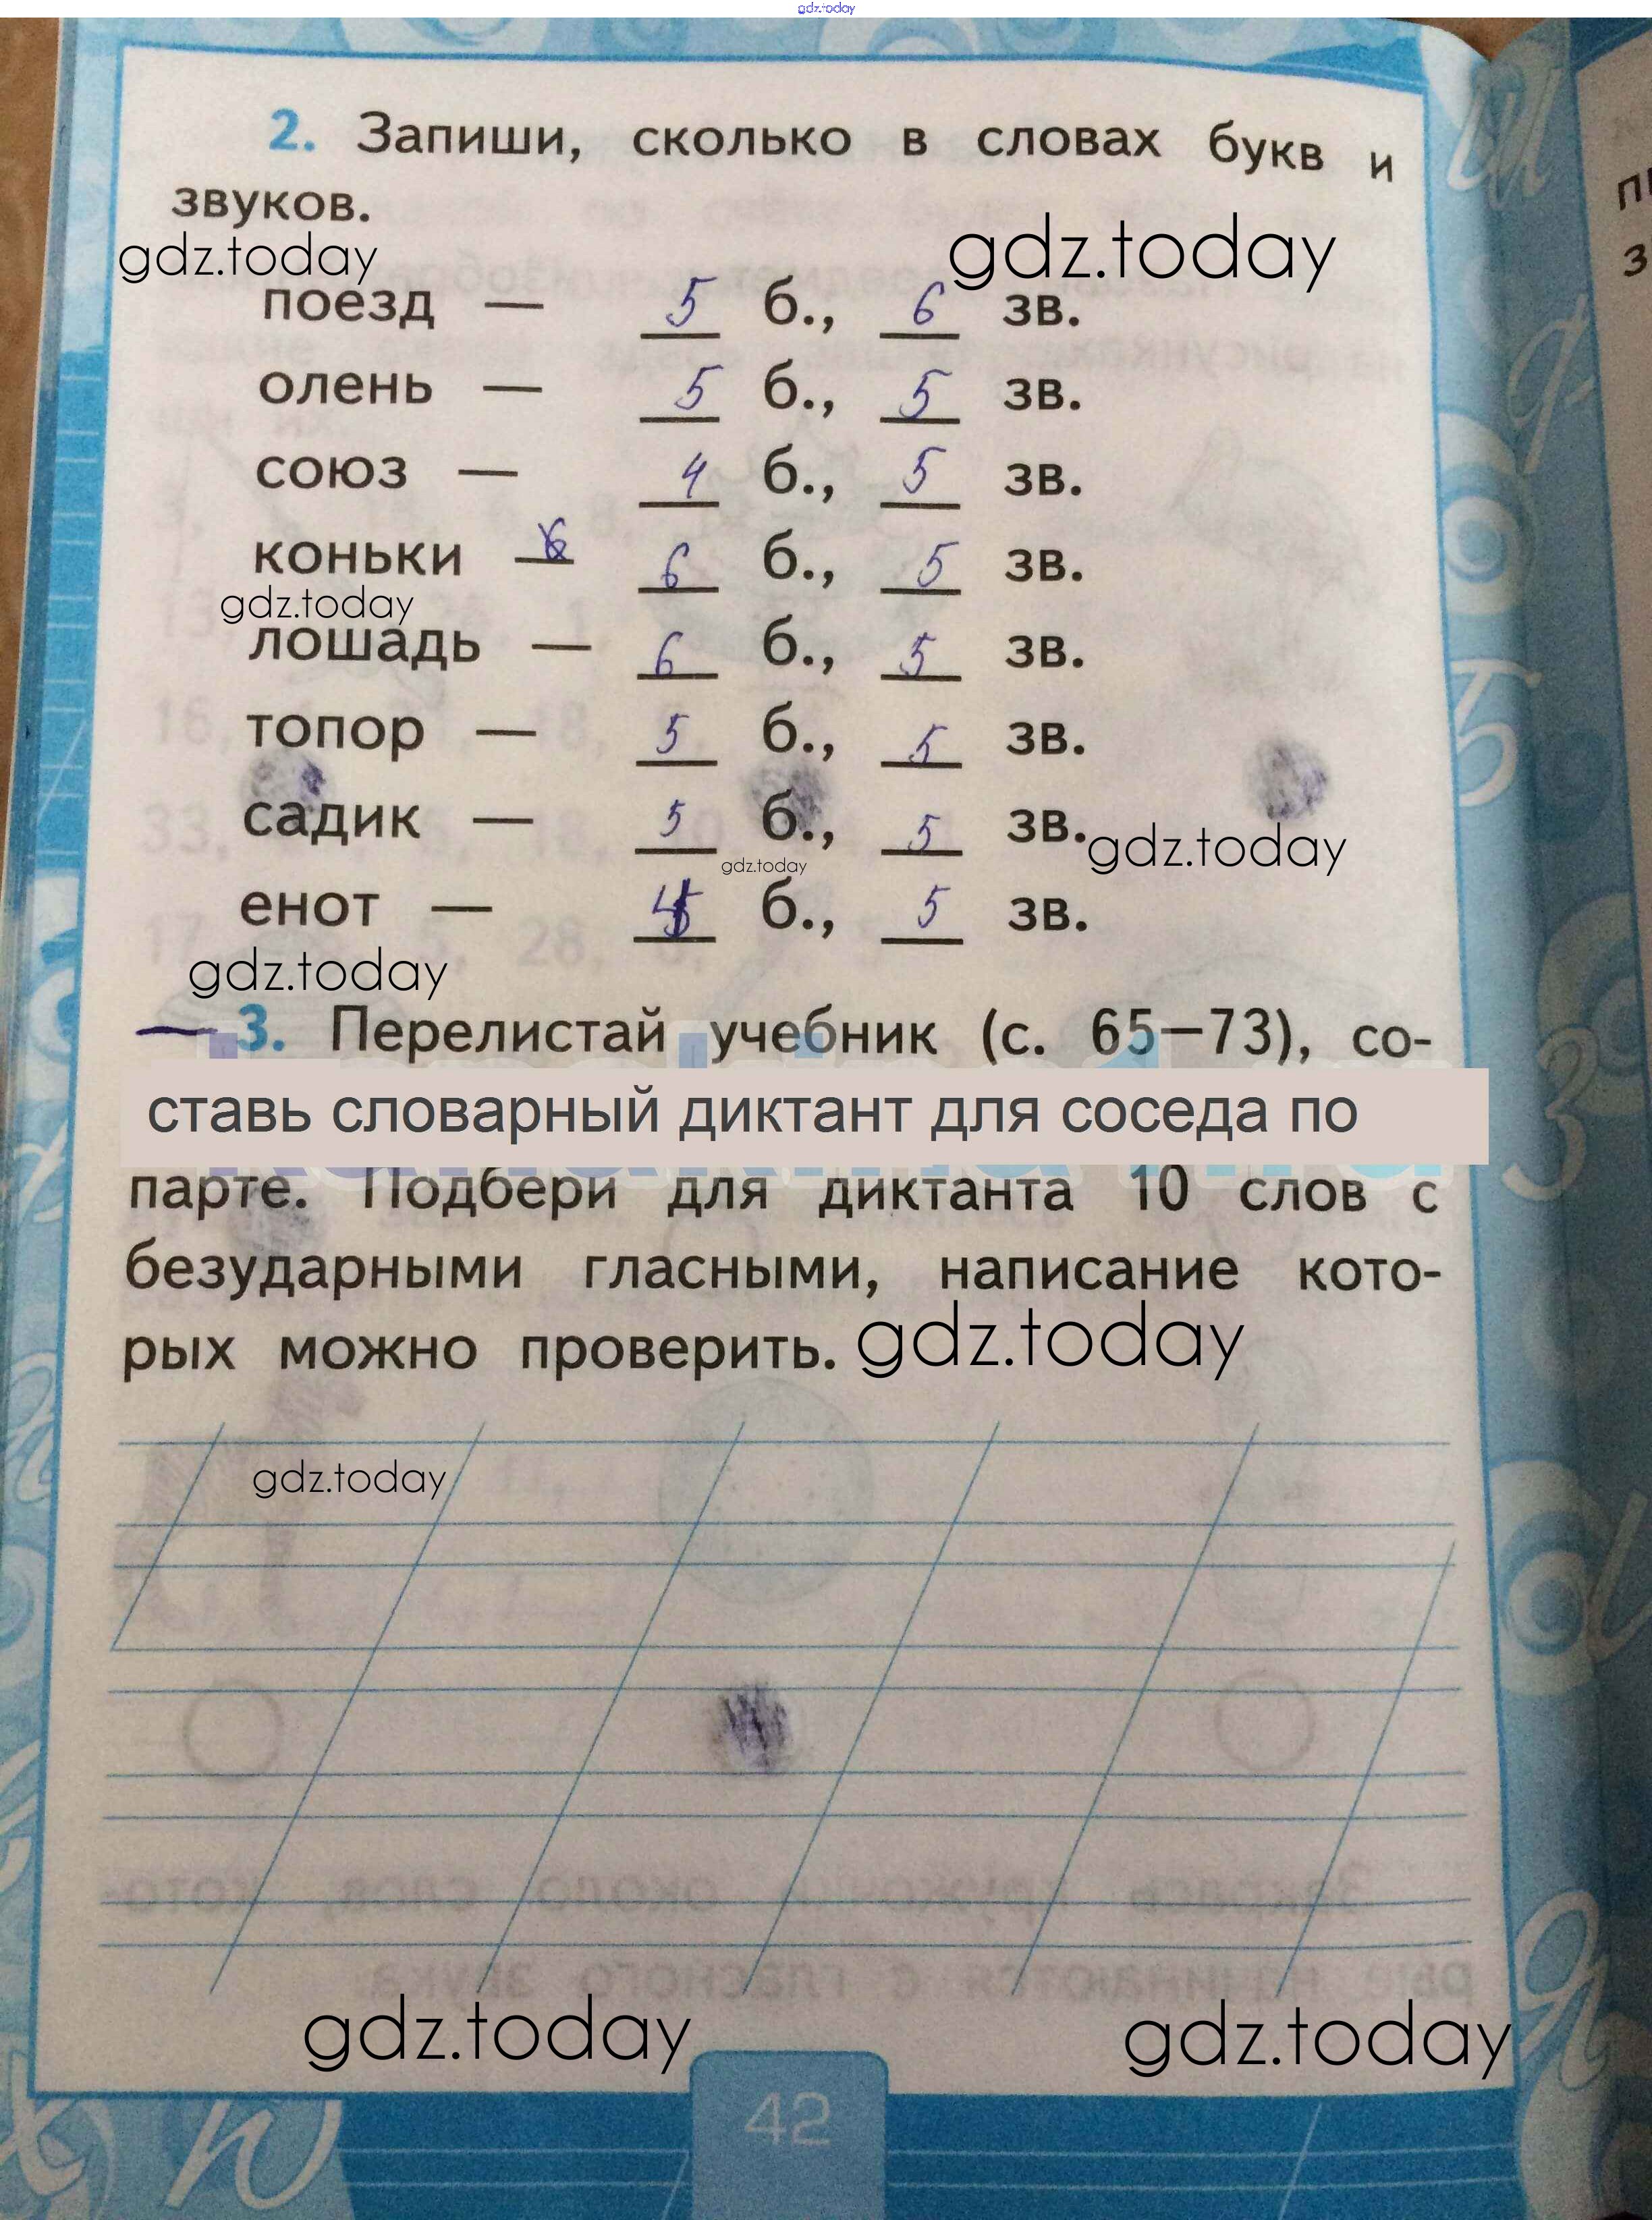 gdz.today
2. Запиши, сколько в словах букв и
звуков.
gdz.today gdz.today
поезд — 5 б., 6 зв.
олень — 5 б., 5 зв.
союз — 4 б., 5 зв.
коньки — 6 б., 5 зв.
gdz.today
лошадь — 6 б., 5 зв.
топор — 5 б., 5 зв.
садик — 5 б., 5 зв.
gdz.today
gdz.today
енот — 4 б., 5 зв.
gdz.today
3. Перелистай учебник (с. 65—73), со-
ставь словарный диктант для соседа по
парте. Подбери для диктанта 10 слов с
безударными гласными, написание кото-
рых можно проверить.
gdz.today
gdz.today
gdz.today gdz.today
42